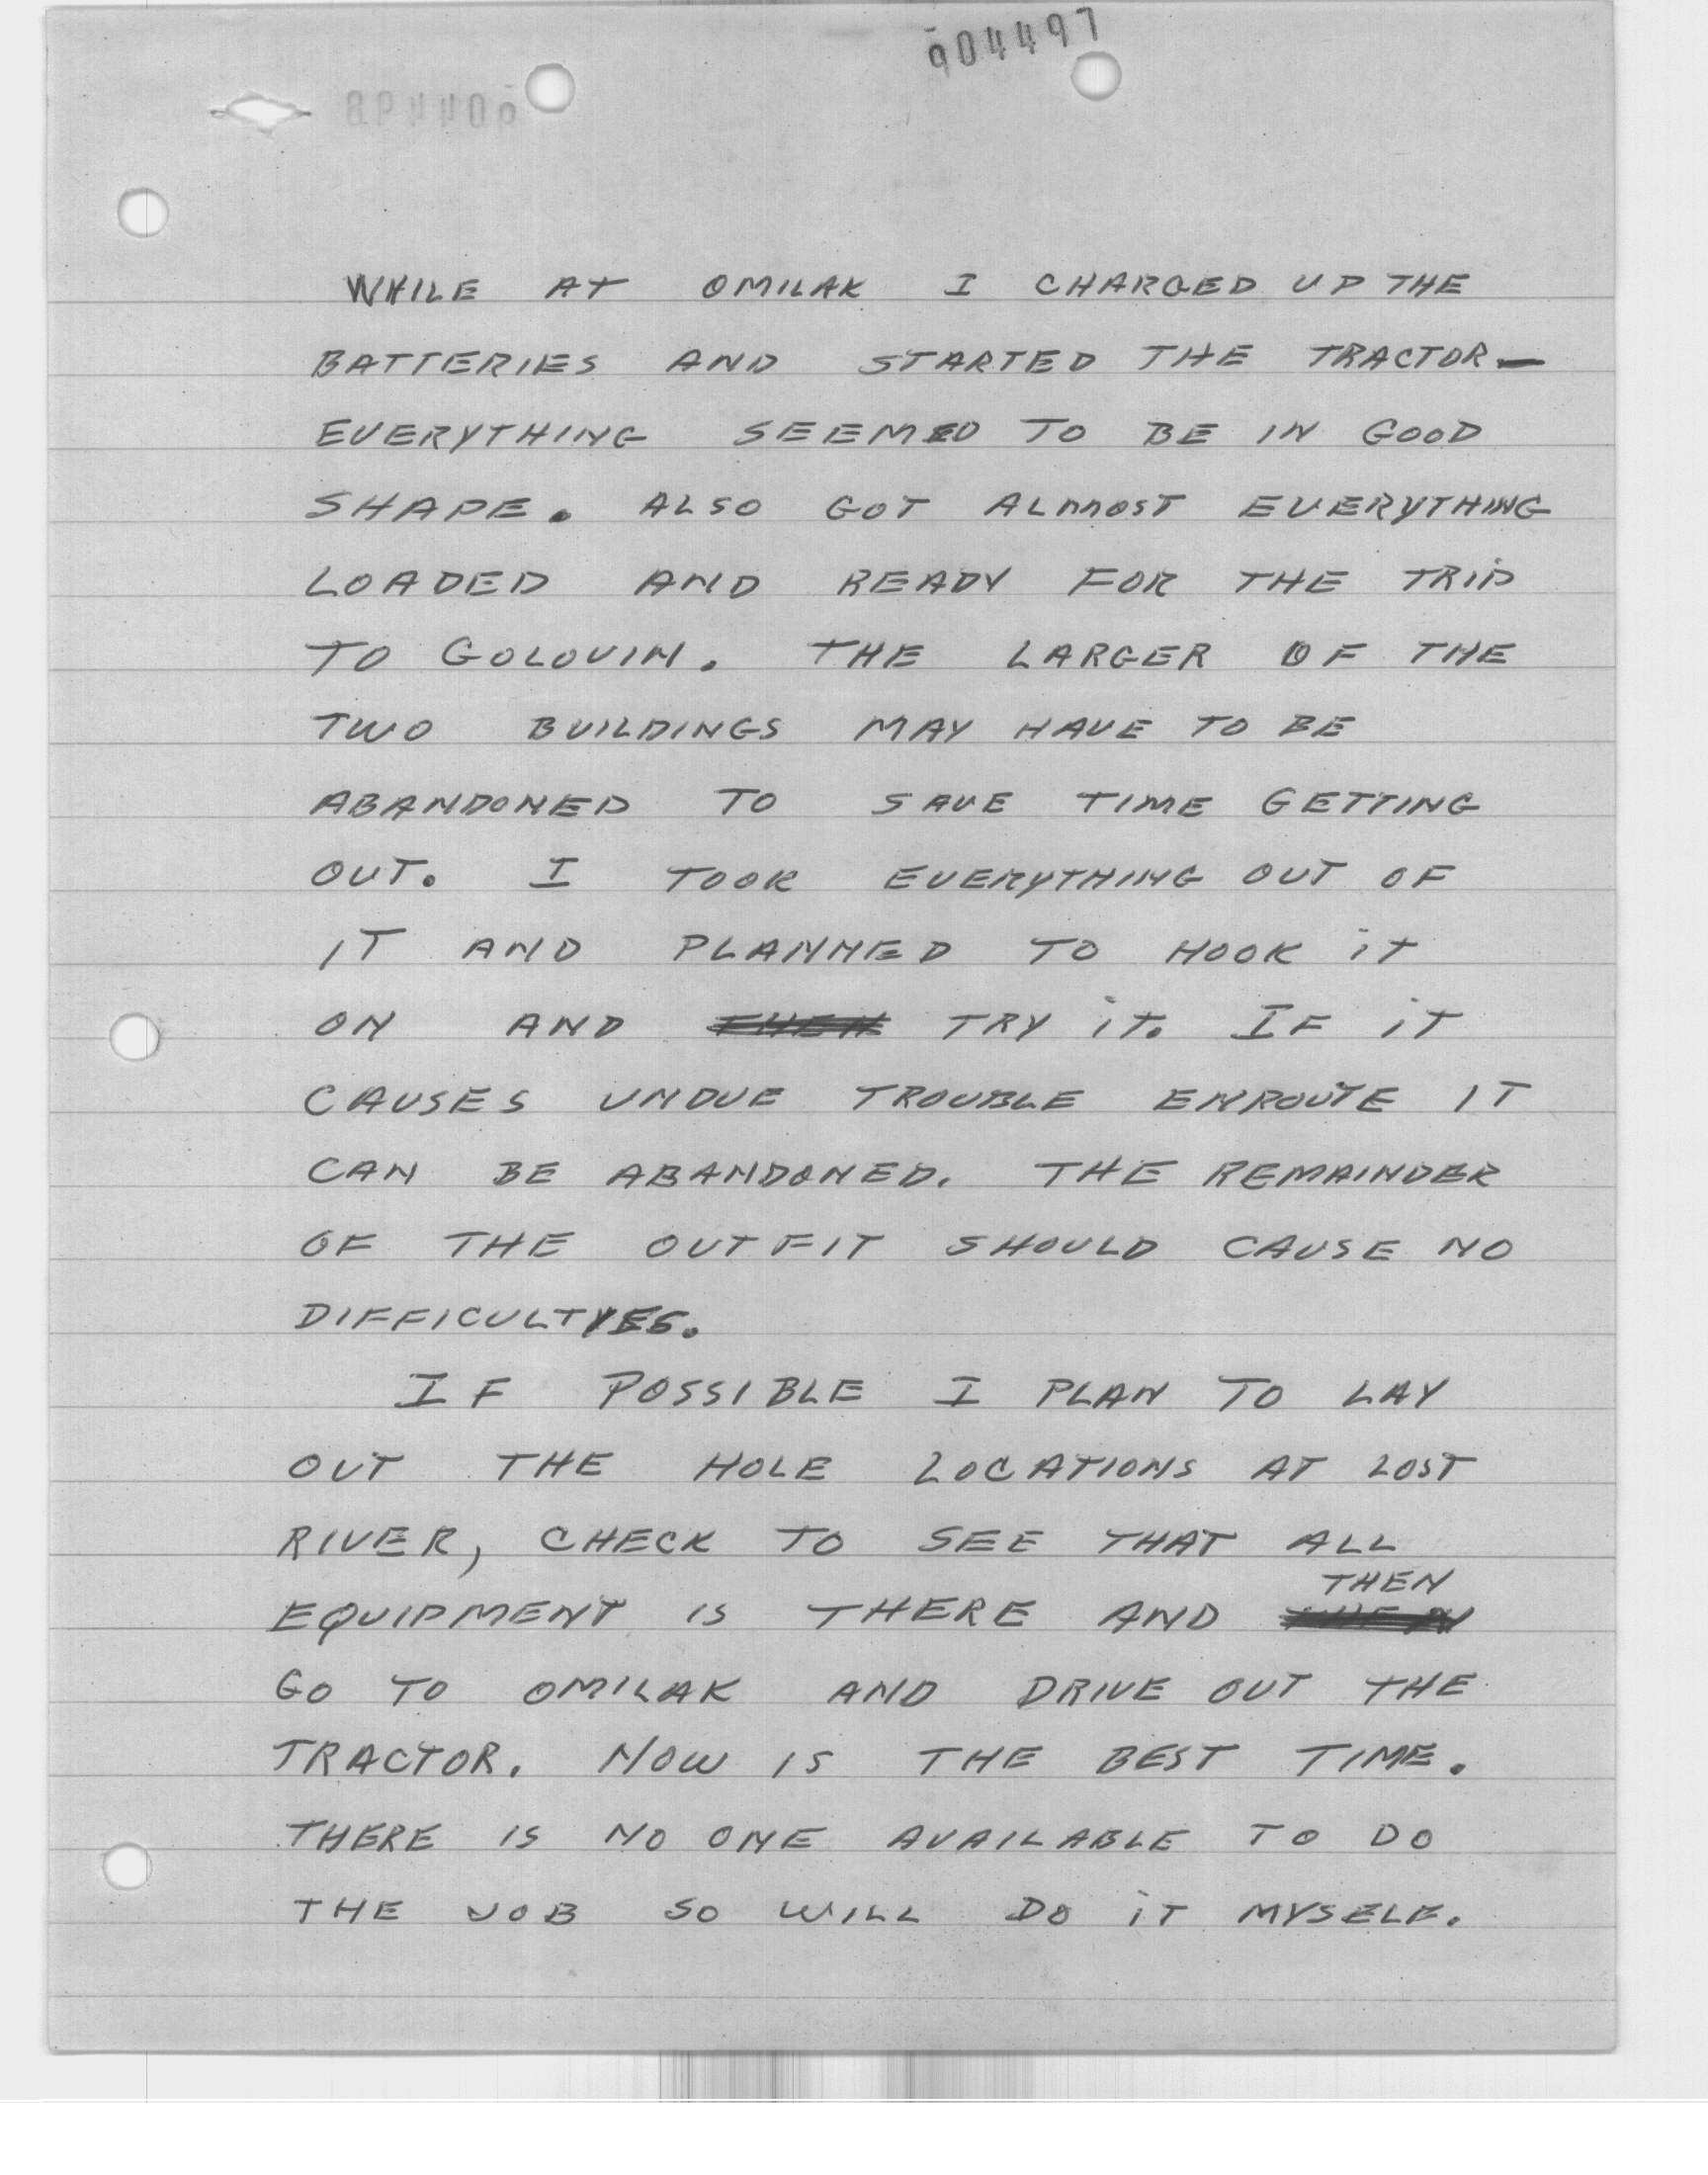 904497
WHILE AT OMILAK I CHARGED UP THE
BATTERIES AND STARTED THE TRACTOR—
EVERYTHING SEEMED TO BE IN GOOD
SHAPE. ALSO GOT ALMOST EVERYTHING
LOADED AND READY FOR THE TRIP
TO GOLOVIN. THE LARGER OF THE
TWO BUILDINGS MAY HAVE TO BE
ABANDONED TO SAVE TIME GETTING
OUT. I TOOK EVERYTHING OUT OF
IT AND PLANNED TO HOOK iT
ON AND TRY iT. IF iT
CAUSES UNDUE TROUBLE ENROUTE IT
CAN BE ABANDONED. THE REMAINDER
OF THE OUTFIT SHOULD CAUSE NO
DIFFICULTYES.
IF POSSIBLE I PLAN TO LAY
OUT THE HOLE LOCATIONS AT LOST
RIVER, CHECK TO SEE THAT ALL
EQUIPMENT IS THERE AND THEN
GO TO OMILAK AND DRIVE OUT THE
TRACTOR. NOW IS THE BEST TIME.
THERE IS NO ONE AVAILABLE TO DO
THE JOB SO WILL DO iT MYSELF.